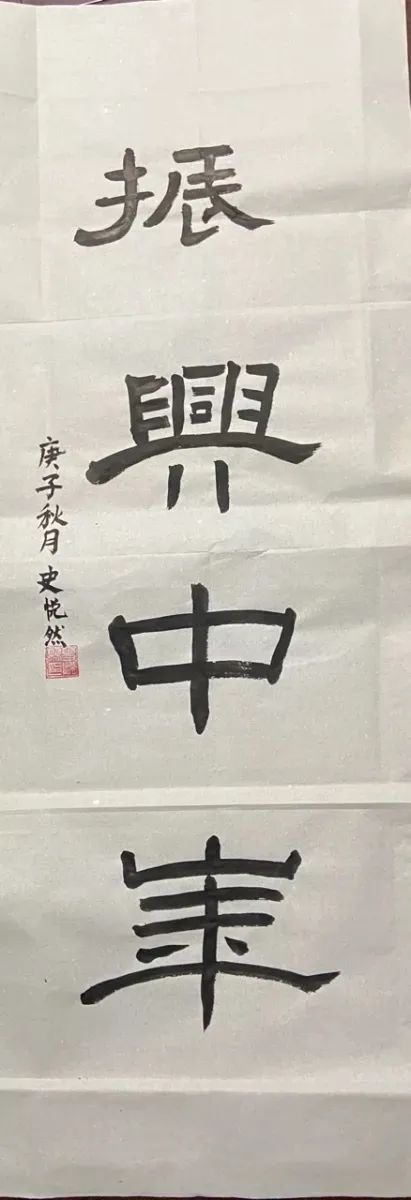 振興中華
庚子秋月 史悦然